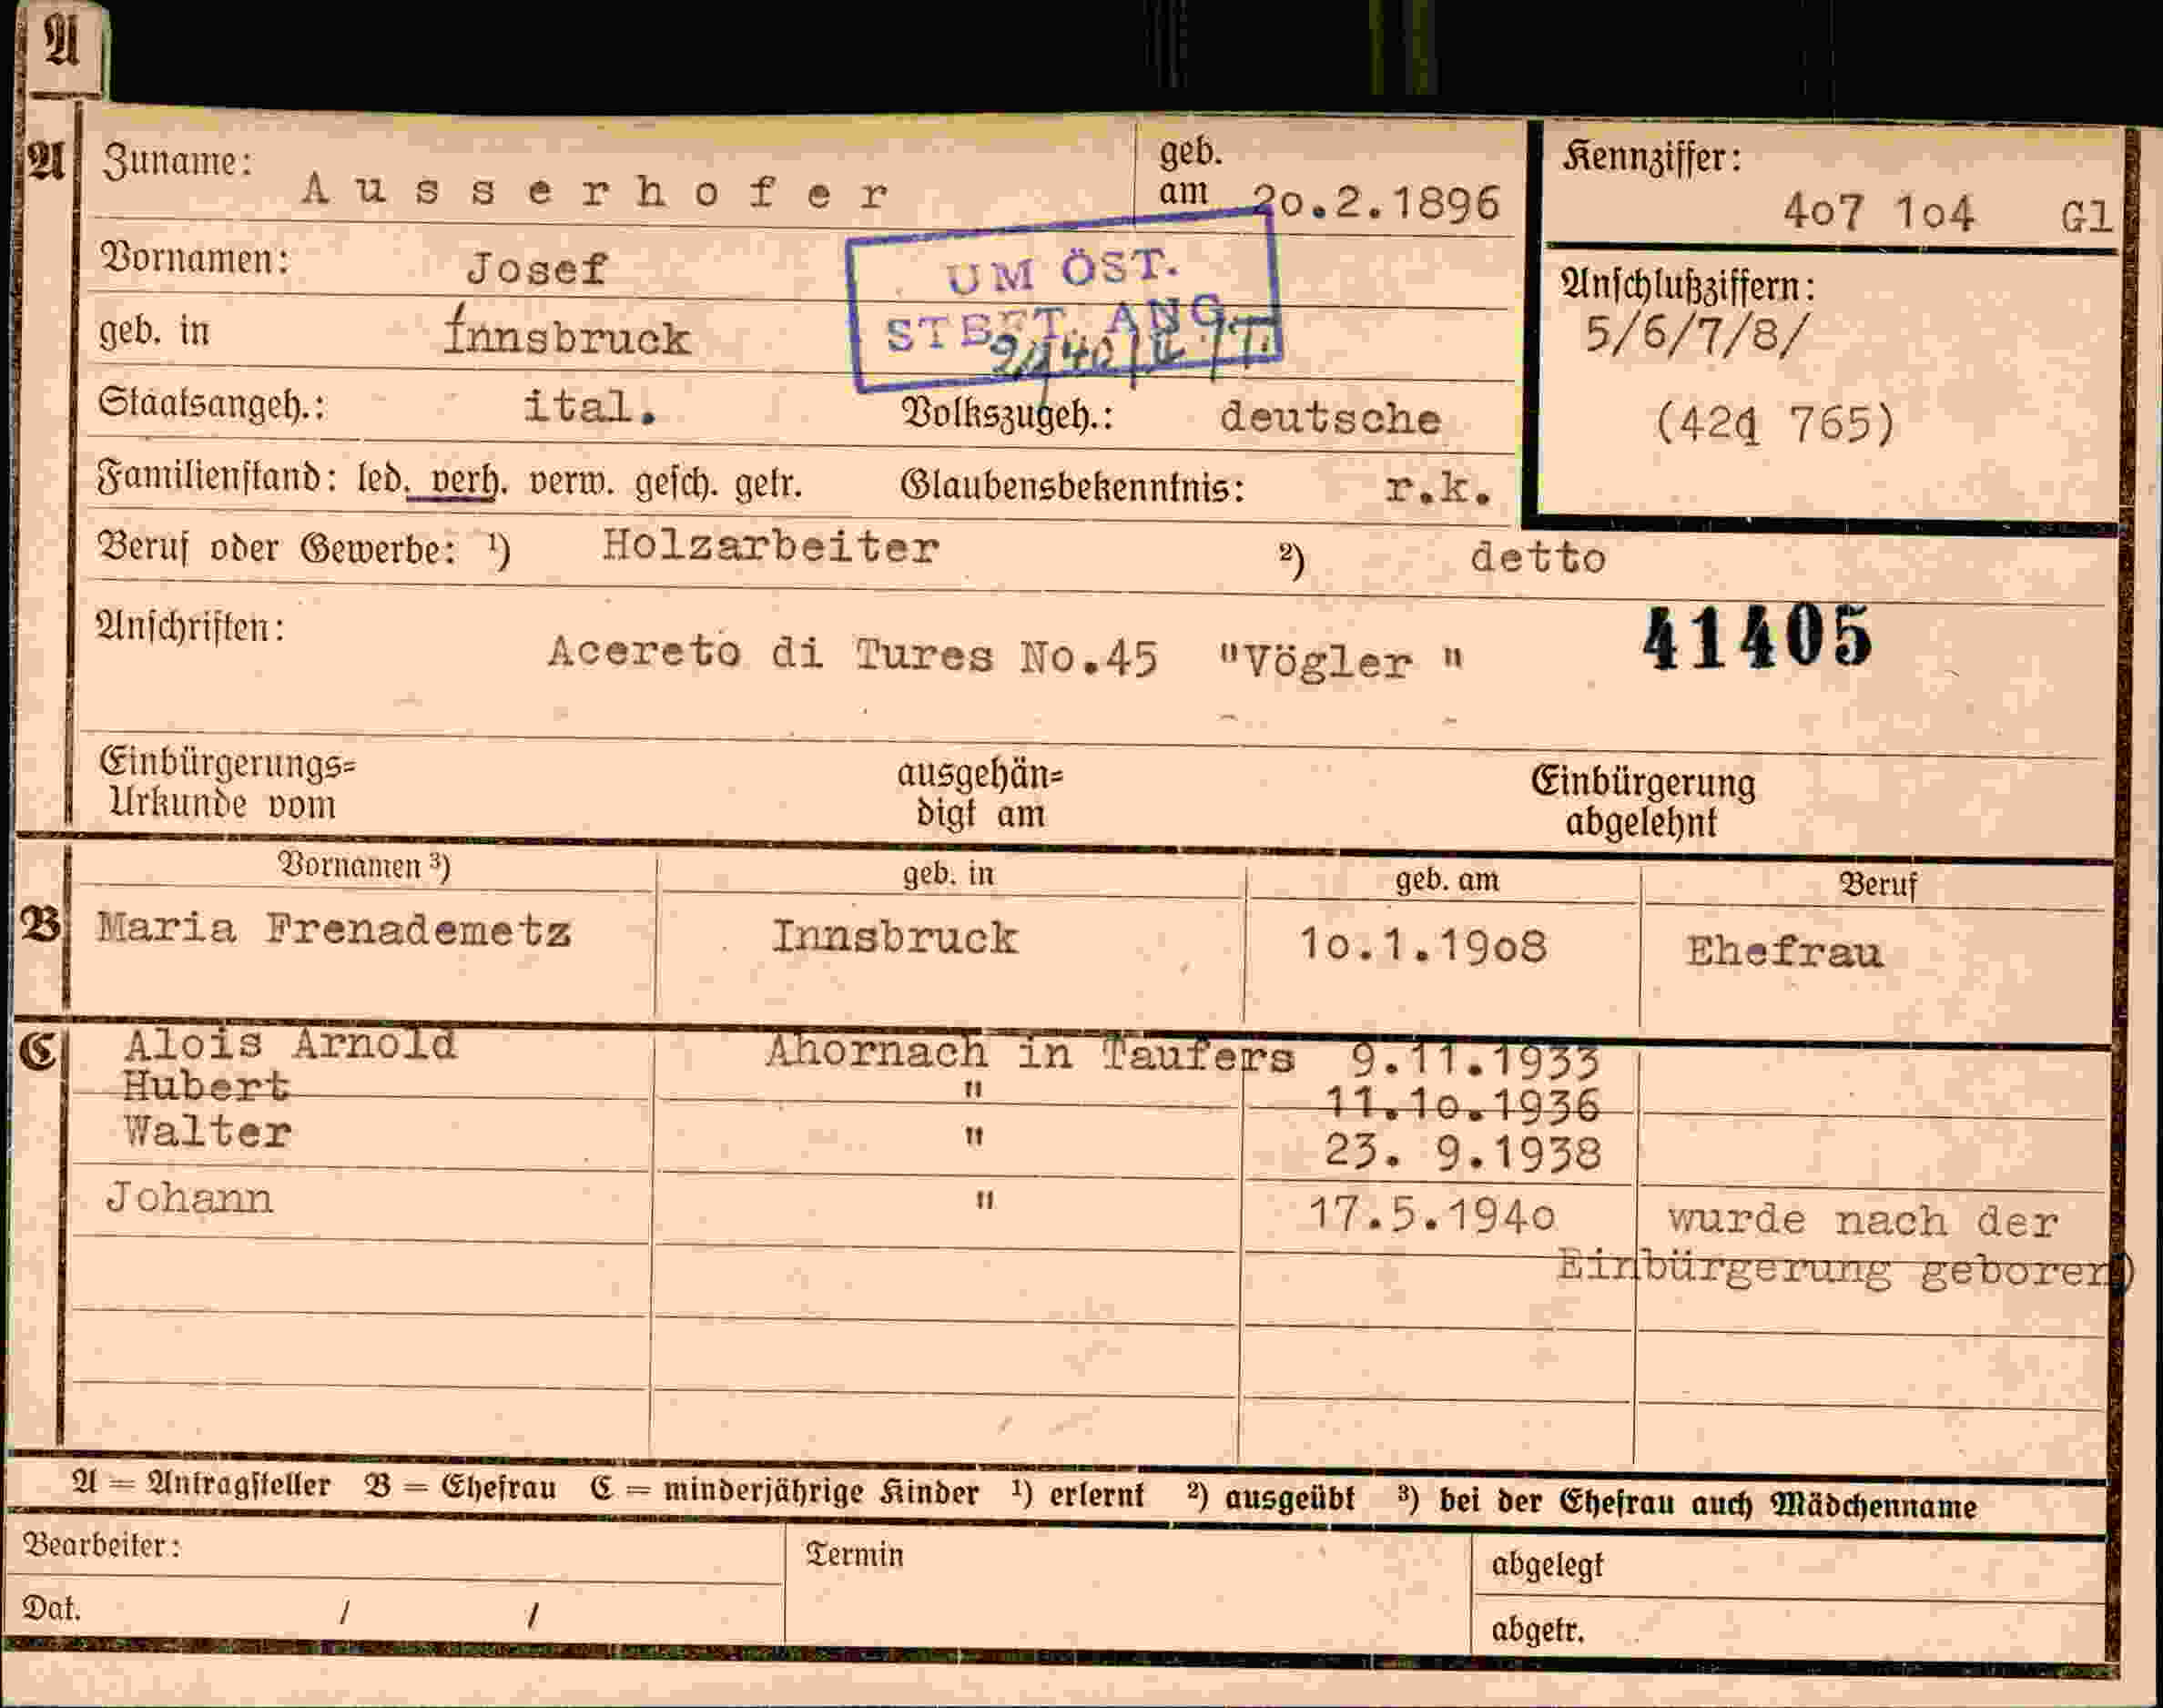 A
A Zuname: Ausserhofer geb. am 2o.2.1896 Kennziffer: 4o7 1o4 Gl
Vornamen: Josef
UM ÖST.
geb. in Innsbruck
Anschlußziffern:
5/6/7/8/
Staatsangeh.: ital. Volkszugeh.: deutsche
(42d 765)
Familienstand: led. verh. verw. gesch. getr. Glaubensbekenntnis: r.k.
Beruf oder Gewerbe: ¹) Holzarbeiter ²) detto
Anschriften: Acereto di Tures No.45 "Vögler "
41405
Einbürgerungs=
Urkunde vom
ausgehän=
digt am
Einbürgerung
abgelehnt
Vornamen ³) geb. in geb. am Beruf
B Maria Frenademetz Innsbruck 1o.1.19o8 Ehefrau
C Alois Arnold Ahornach in Taufers 9.11.1933
Hubert " 11.1o.1936
Walter " 23. 9.1938
Johann " 17.5.194o wurde nach der
Einbürgerung geboren)
A = Antragsteller B = Ehefrau C = minderjährige Kinder ¹) erlernt ²) ausgeübt ³) bei der Ehefrau auch Mädchenname
Bearbeiter: Termin abgelegt
Dat. / / abgetr.